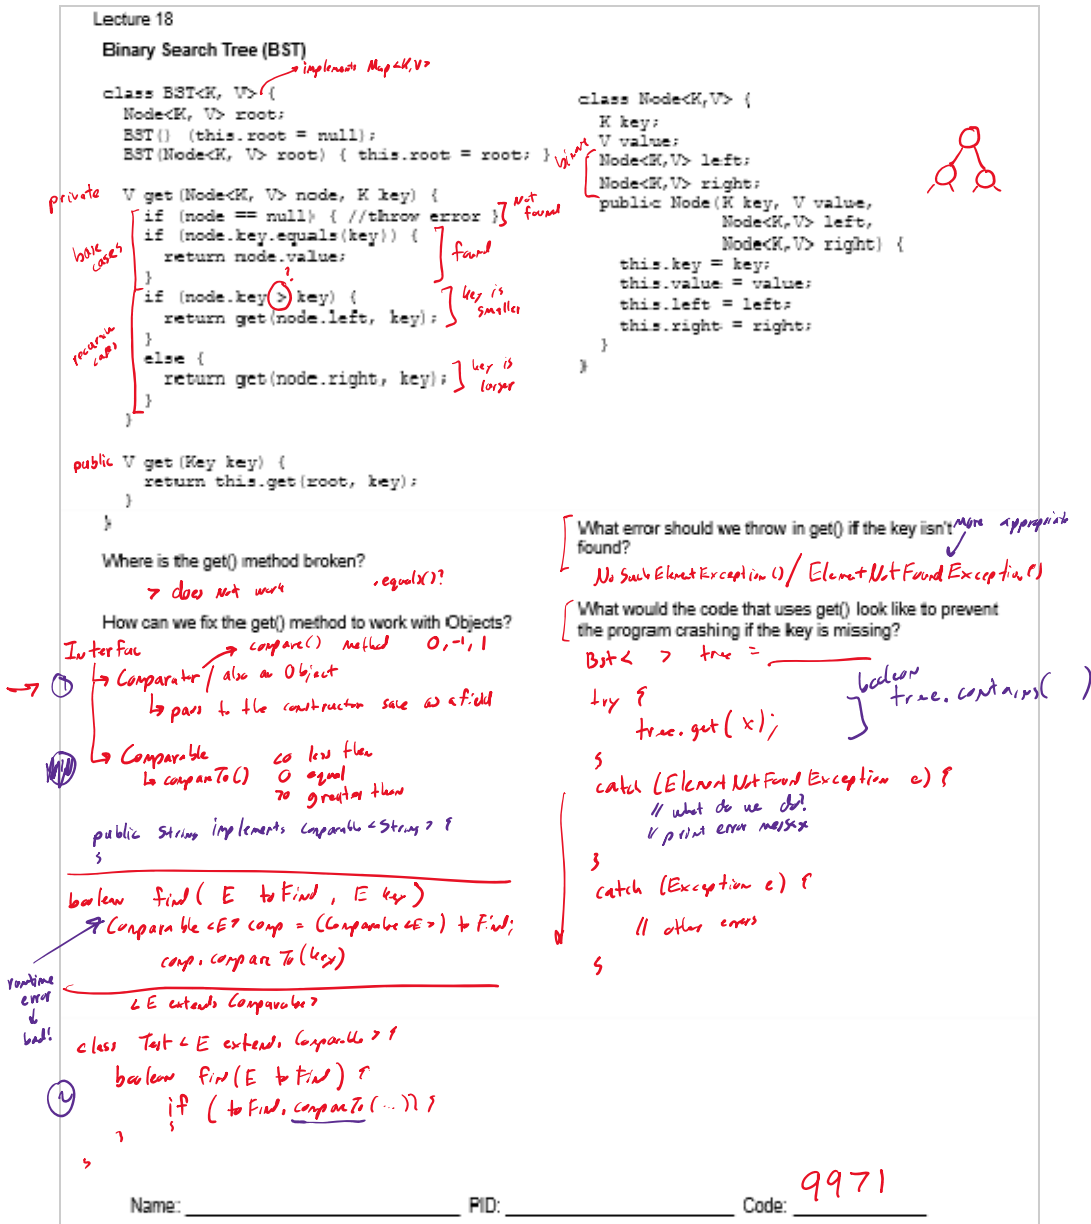 Lecture 18
Binary Search Tree (BST)
implements Map<K,V>
class BST<K, V> {
Node<K, V> root;
BST() (this.root = null);
BST(Node<K, V> root) { this.root = root; }
private V get(Node<K, V> node, K key) {
if (node == null) { //throw error }
Not found
if (node.key.equals(key)) {
return node.value;
}
found
base cases
?
if (node.key > key) {
return get(node.left, key);
}
key is smaller
recursive cases
else {
return get(node.right, key);
}
key is larger
}
public V get(Key key) {
return this.get(root, key);
}
}
class Node<K,V> {
K key;
V value;
Node<K,V> left;
Node<K,V> right;
public Node(K key, V value,
Node<K,V> left,
Node<K,V> right) {
this.key = key;
this.value = value;
this.left = left;
this.right = right;
}
}
Where is the get() method broken?
> does not work .equals()?
How can we fix the get() method to work with Objects?
Interface
compare() method 0, -1, 1
1 Comparator / also an Object
pass to the constructor save as a field
Comparable
compareTo()
<0 less than
0 equal
>0 greater than
public String implements Comparable<String> {
}
boolean find( E toFind, E key)
Comparable<E> comp = (Comparable<E>) toFind;
comp.compareTo(key)
runtime error
bad!
<E extends Comparable>
class Test<E extends Comparable> {
boolean find(E toFind) {
2
if (toFind.compareTo(...)) {
}
}
}
What error should we throw in get() if the key iisn't
found?
More appropriate
NoSuchElementException() / ElementNotFoundException()
What would the code that uses get() look like to prevent
the program crashing if the key is missing?
Bst< > tree =
try {
tree.get(x);
boolean
tree.contains( )
}
catch (ElementNotFoundException e) {
// what do we do?
// print error message
}
catch (Exception e) {
// other errors
}
Name:
PID:
Code: 9971